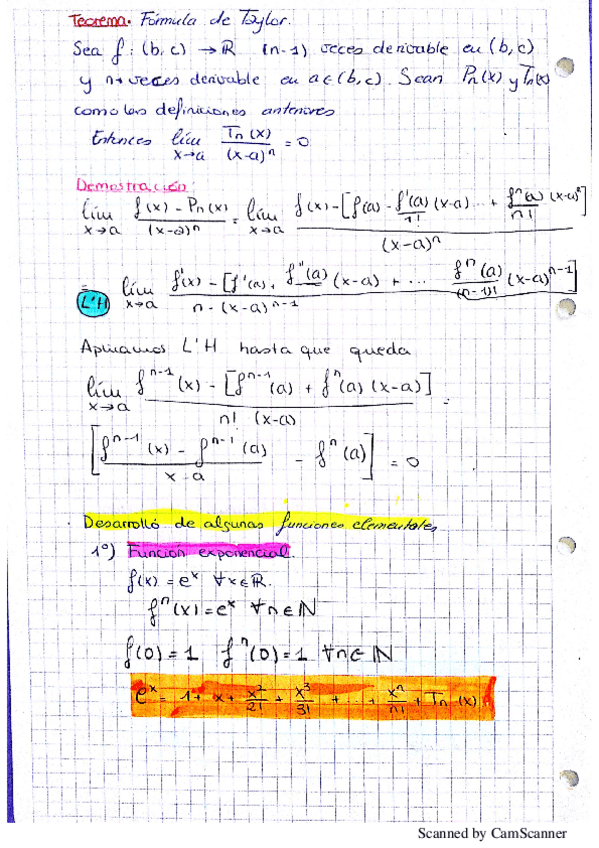 Teorema. Fórmula de Taylor.
Sea f: (b,c) → ℝ (n-1) veces derivable en (b,c)
y n veces derivable en a∈(b,c). Sean Pn(x) y Tn(x)
como las definiciones anteriores
Entonces lím x→a Tn(x)/(x-a)^n = 0
Demostración
lím x→a f(x) - Pn(x)/(x-a)^n = lím x→a f(x) - [f(a) - f'(a)/1! (x-a) ... + f^n(a)/n! (x-a)^n]/(x-a)^n
= L'H lím x→a f'(x) - [f'(a) + f''(a) (x-a) + ... f^n(a)/(n-1)! (x-a)^n-1]/n·(x-a)^n-1
Aplicamos L'H hasta que queda
lím x→a f^n-1(x) - [f^n-1(a) + f^n(a)(x-a)]/n! (x-a) =
[f^n-1(x) - f^n-1(a)/x-a - f^n(a)] = 0
Desarrollo de algunas funciones elementales
1º) Función exponencial.
f(x) = e^x ∀x∈ℝ.
f^n(x) = e^x ∀n∈ℕ
f(0) = 1 f^n(0) = 1 ∀n∈ℕ
e^x = 1 + x + x^2/2! + x^3/3! + ... + x^n/n! + Tn(x)
Scanned by CamScanner